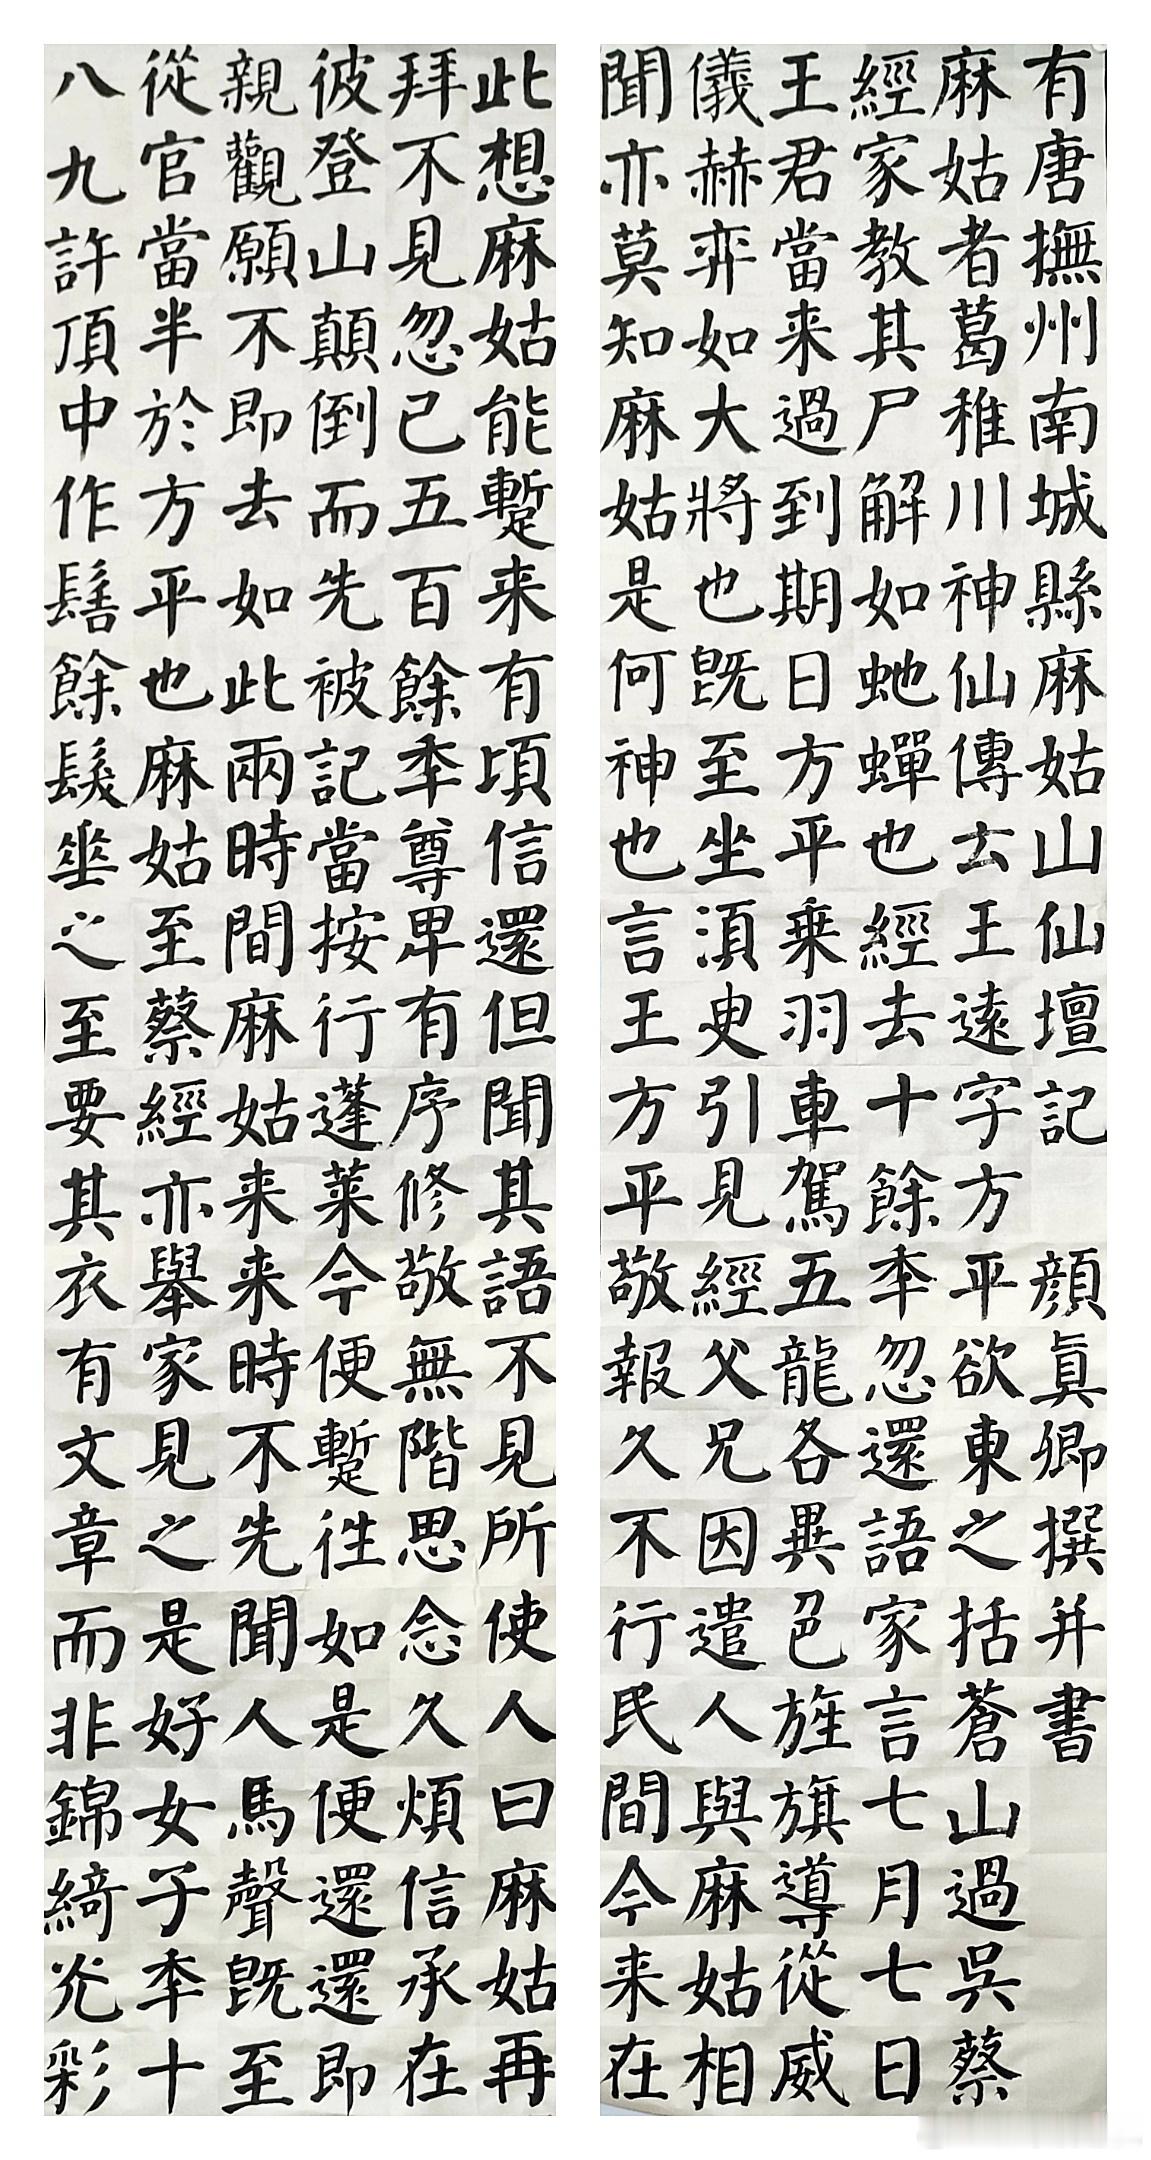 有唐撫州南城縣麻姑山仙壇記 顔真卿撰并書
麻姑者葛稚川神仙傳云王遠字方平欲東之括蒼山過吳蔡
經家教其尸解如虵蟬也經去十餘秊忽還語家言七月七日
王君當来過到期日方平乗羽車駕五龍各異色旌旗導從威
儀赫弈如大將也旣至坐湏史引見經父兄因遣人與麻姑相
聞亦莫知麻姑是何神也言王方平敬報久不行民間今来在
此想麻姑能蹔来有頃信還但聞其語不見所使人曰麻姑再
拜不見忽已五百餘秊尊卑有序修敬無階思念久煩信承在
彼登山顛倒而先被記當按行蓬萊今便蹔往如是便還還即
親觀願不即去如此兩時間麻姑来来時不先聞人馬聲旣至
從官當半於方平也麻姑至蔡經亦舉家見之是好女子秊十
八九許頂中作髻餘髮垂之至要其衣有文章而非錦綺光彩